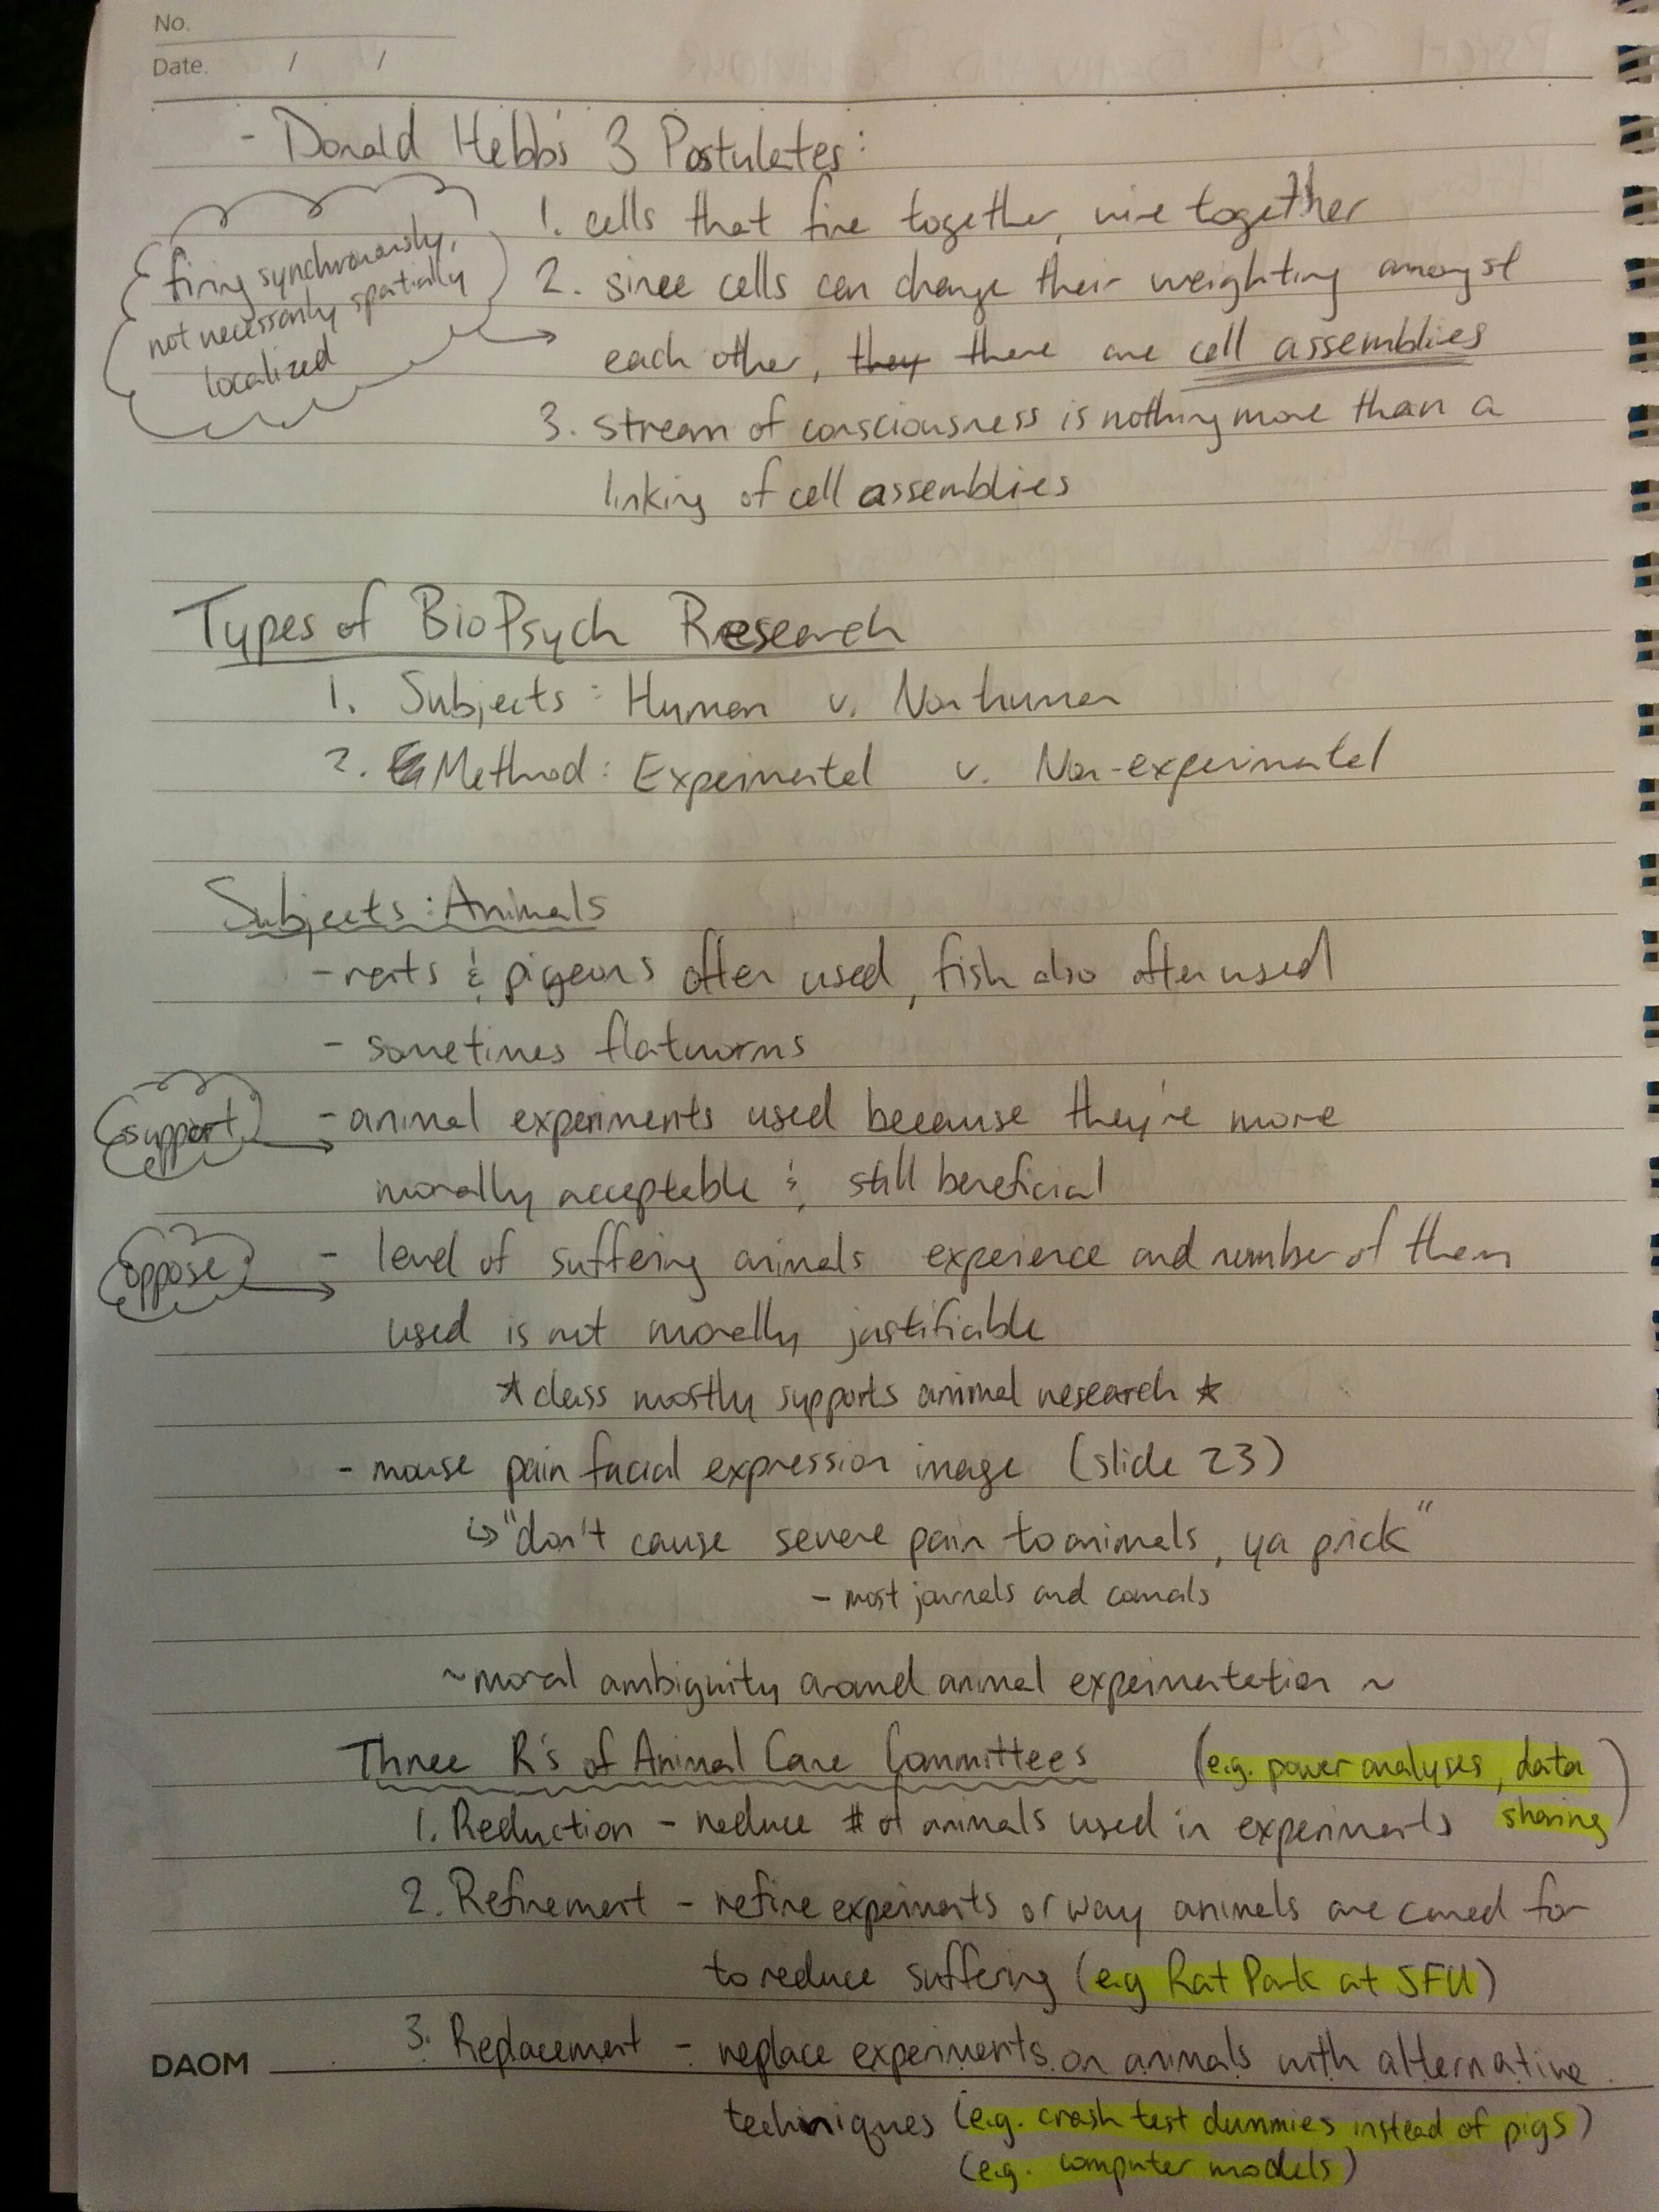 No.
Date. / /
- Donald Hebb's 3 Postulates:
1. cells that fire together, wire together
2. since cells can change their weighting amongst
each other, they there are cell assemblies
firing synchronously,
not necessarily spatially
localized
3. stream of consciousness is nothing more than a
linking of cell assemblies
Types of BioPsych Research
1. Subjects: Human v. Nonhuman
2. Method: Experimental v. Non-experimental
Subjects: Animals
- rats & pigeons often used, fish also often used
- sometimes flatworms
support
- animal experiments used because they're more
morally acceptable & still beneficial
oppose
- level of suffering animals experience and number of them
used is not morally justifiable
* class mostly supports animal research *
- mouse pain facial expression image (slide 23)
↳ "don't cause severe pain to animals, ya prick"
- most journals and
~ moral ambiguity around animal experimentation ~
Three R's of Animal Care Committees
(e.g. power analyses, data
sharing)
1. Reduction - reduce # of animals used in experiments
2. Refinement - refine experiments or way animals are cared for
to reduce suffering (e.g Rat Park at SFU)
3. Replacement - replace experiments on animals with alternative
techniques (e.g. crash test dummies instead of pigs)
(e.g. computer models)
DAOM